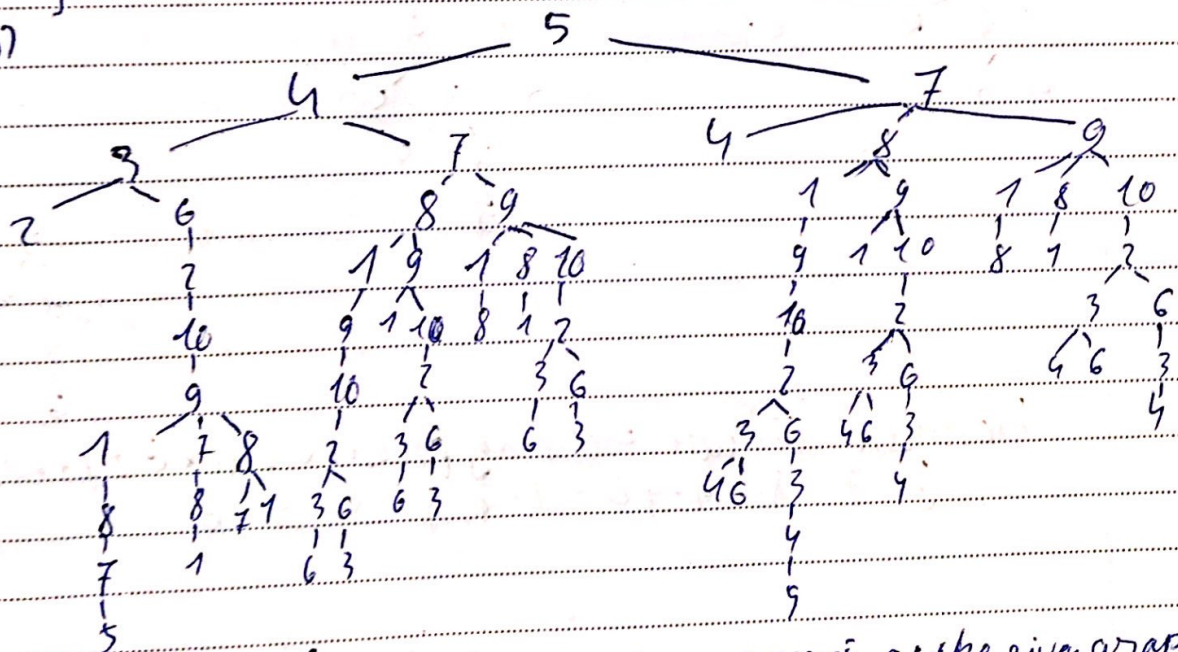 5
4 7
3 7 4 8 9
2 6 8 9 1 9 1 8 10
2 1 9 1 8 10 9 1 10 8 1 2
10 9 1 10 8 1 2 10 2 3 6
9 10 2 3 6 2 3 6 4 6 3
1 7 8 2 3 6 6 3 3 6 4 6 3 4
8 8 7 1 3 6 6 3 4 6 3 4
7 1 6 3 4
5 9